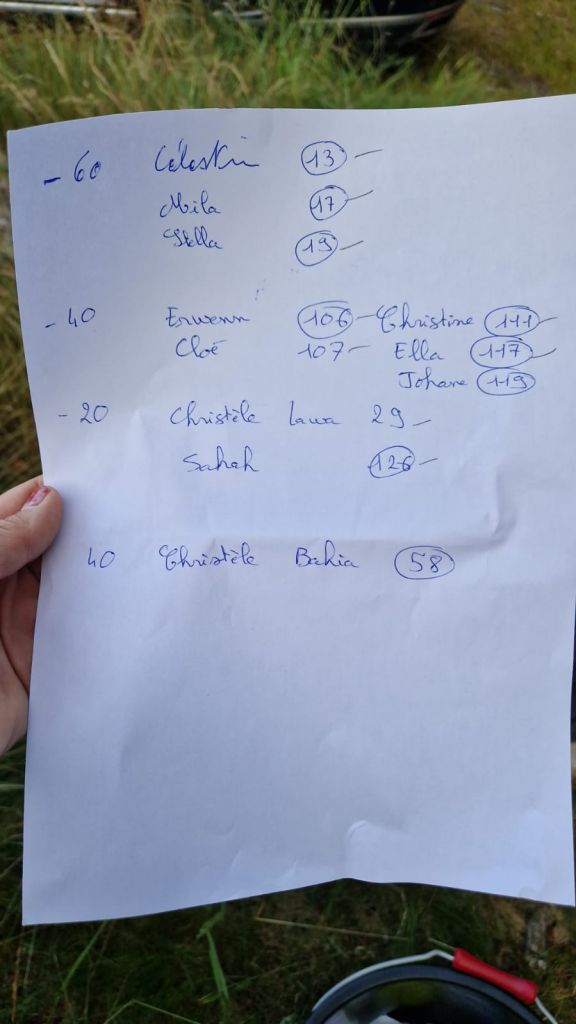 - 60 Célestin 13 -
Mila 17 -
Stella 19 -
- 40 Erwenn 106 - Christine 111 -
Cloé 107 - Ella 117 -
Johane 119
- 20 Christèle Laura 29 -
Sahah 126 -
40 Christèle Bahia 58